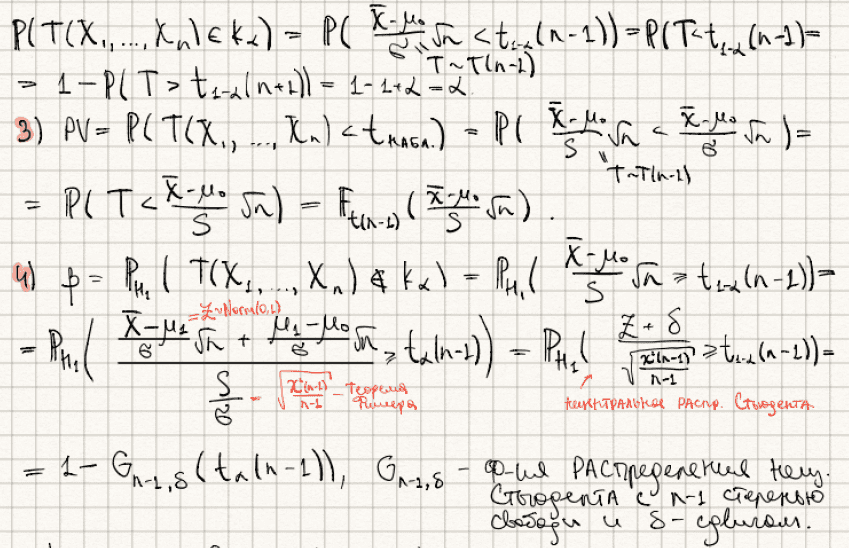 P(T(X₁,...,Xₙ)∈K_α) = P( (X̄-μ₀)/σ √n < t_{1-α}(n-1)) = P(T<t_{1-α}(n-1)=
" T~T(n-1)
= 1-P(T > t_{1-α}(n+1)) = 1-1+α = α
3) PV = P(T(X₁,...,Xₙ) < t_{набл.}) = P( (X̄-μ₀)/S √n < (X̄-μ₀)/σ √n )=
" T~T(n-1)
= P( T < (X̄-μ₀)/S √n ) = F_{t(n-1)}( (X̄-μ₀)/S √n ) .
4) β = P_{H₁}( T(X₁,...,Xₙ) ∉ K_α) = P_{H₁}( (X̄-μ₀)/S √n ≥ t_{1-α}(n-1))=
= Z~Norm(0,1)
= P_{H₁}( ((X̄-μ₁)/σ √n + (μ₁-μ₀)/σ √n) / (S/σ) ≥ t_α(n-1)) = P_{H₁}( (Z+δ)/√(χ²(n-1)/(n-1)) ≥ t_{1-α}(n-1))=
= √(χ²(n-1)/(n-1)) - теорема Фишера
нецнтральное распр. Стьюдента
= 1 - G_{n-1,δ}(t_α(n-1)), G_{n-1,δ} - ф-ия распределения нец.
Стьюдента с n-1 степенью
свободы и δ-сдвигом.